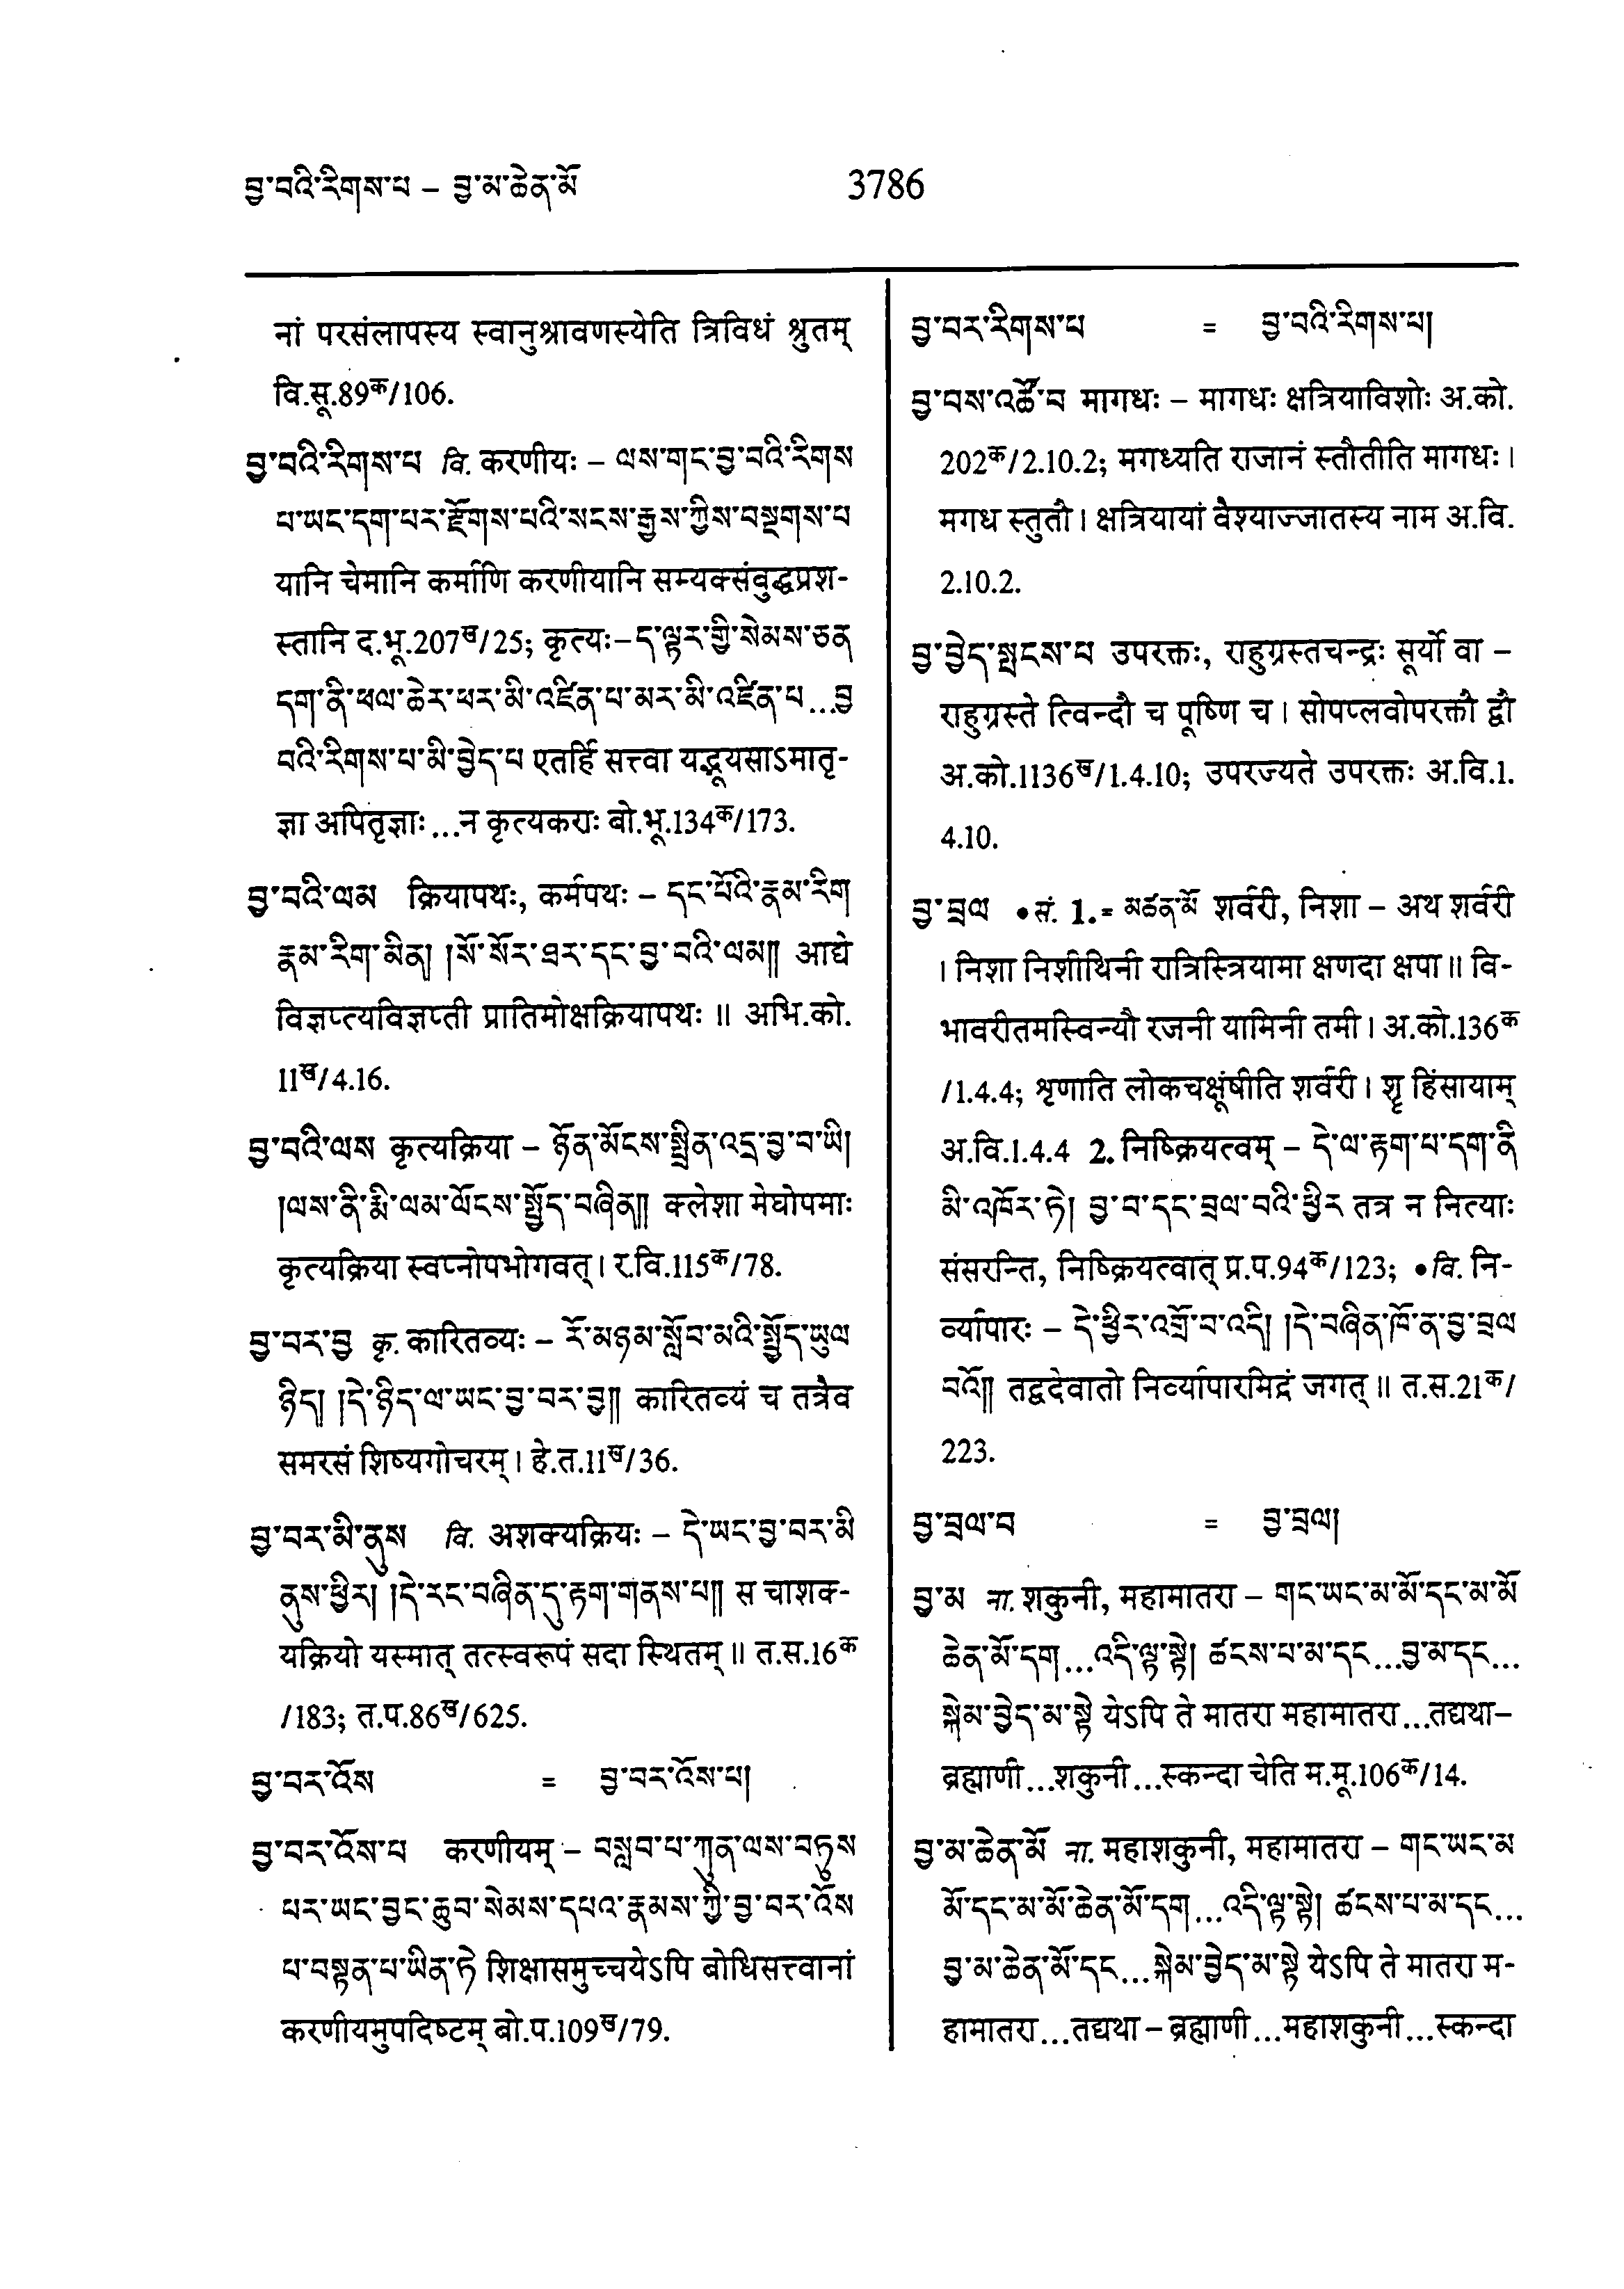 བྱ་བའི་རིགས་པ – བྱ་མ་ཆེན་མོ
3786
नां परसंलापस्य स्वानुश्रावणस्येति त्रिविधं श्रुतम्
वि.सू.89क/106.
བྱ་བའི་རིགས་པ वि. करणीयः – ལས་གང་བྱ་བའི་རིགས
པ་ཡང་དག་པར་རྫོགས་པའི་སངས་རྒྱས་ཀྱིས་བསྔགས་པ
यानि चेमानि कर्माणि करणीयानि सम्यक्संबुद्धप्रश-
स्तानि द.भू.207ख/25; कृत्यः–ད་ལྟར་གྱི་སེམས་ཅན
དག་ནི་ཕལ་ཆེར་ཕར་མི་འཛིན་པ་མར་མི་འཛིན་པ...བྱ
བའི་རིགས་པ་མི་བྱེད་པ एतर्हि सत्त्वा यद्भूयसाऽमातृ-
ज्ञा अपितृज्ञाः...न कृत्यकराः बो.भू.134क/173.
བྱ་བའི་ལམ क्रियापथः, कर्मपथः – དང་པོའི་རྣམ་རིག
རྣམ་རིག་མིན། །སོ་སོར་ཐར་དང་བྱ་བའི་ལམ།། आद्ये
विज्ञप्त्यविज्ञप्ती प्रातिमोक्षक्रियापथः ॥ अभि.को.
11ख/4.16.
བྱ་བའི་ལས कृत्यक्रिया – ཉོན་མོངས་སྤྲིན་འདྲ་བྱ་བ་ཡི།
།ལས་ནི་རྨི་ལམ་ལོངས་སྤྱོད་བཞིན།། क्लेशा मेघोपमाः
कृत्यक्रिया स्वप्नोपभोगवत्। र.वि.115क/78.
བྱ་བར་བྱ कृ. कारितव्यः – རོ་མཉམ་སློབ་མའི་སྤྱོད་ཡུལ
ཉིད། །དེ་ཉིད་ལ་ཡང་བྱ་བར་བྱ།། कारितव्यं च तत्रैव
समरसं शिष्यगोचरम्। हे.त.11ख/36.
བྱ་བར་མི་ནུས वि. अशक्यक्रियः – དེ་ཡང་བྱ་བར་མི
ནུས་ཕྱིར། །དེ་རང་བཞིན་དུ་རྟག་གནས་པ།། स चाशक-
यक्रियो यस्मात् तत्स्वरूपं सदा स्थितम् ॥ त.स.16क
/183; त.प.86ख/625.
བྱ་བར་འོས = བྱ་བར་འོས་པ།
བྱ་བར་འོས་པ करणीयम् – བསླབ་པ་ཀུན་ལས་བཏུས
པར་ཡང་བྱང་ཆུབ་སེམས་དཔའ་རྣམས་ཀྱི་བྱ་བར་འོས
པ་བསྟན་པ་ཡིན་ཏེ शिक्षासमुच्चयेऽपि बोधिसत्त्वानां
करणीयमुपदिष्टम् बो.प.109ख/79.
བྱ་བར་རིགས་པ = བྱ་བའི་རིགས་པ།
བྱ་བས་འཚོ་བ मागधः – मागधः क्षत्रियाविशोः अ.को.
202क/2.10.2; मगध्यति राजानं स्तौतीति मागधः।
मगध स्तुतौ। क्षत्रियायां वैश्याज्जातस्य नाम अ.वि.
2.10.2.
བྱ་བྱེད་སྤངས་པ उपरक्तः, राहुग्रस्तचन्द्रः सूर्यो वा –
राहुग्रस्ते त्विन्दौ च पूष्णि च। सोपप्लवोपरक्तौ द्वौ
अ.को.1136ख/1.4.10; उपरज्यते उपरक्तः अ.वि.1.
4.10.
བྱ་བྲལ • सं. 1.= མཚན་མོ शर्वरी, निशा – अथ शर्वरी
। निशा निशीथिनी रात्रिस्त्रियामा क्षणदा क्षपा ॥ वि-
भावरीतमस्विन्यौ रजनी यामिनी तमी। अ.को.136क
/1.4.4; शृणाति लोकचक्षूंषीति शर्वरी। शॄ हिंसायाम्
अ.वि.1.4.4 2. निष्क्रियत्वम् – དེ་ལ་རྟག་པ་དག་ནི
མི་འཁོར་ཏེ། བྱ་བ་དང་བྲལ་བའི་ཕྱིར तत्र न नित्याः
संसरन्ति, निष्क्रियत्वात् प्र.प.94क/123; • वि. नि-
र्व्यापारः – དེ་ཕྱིར་འགྲོ་བ་འདི། །དེ་བཞིན་ཁོ་ན་བྱ་བྲལ
བའོ།། तद्वदेवातो निर्व्यापारमिदं जगत् ॥ त.स.21क/
223.
བྱ་བྲལ་བ = བྱ་བྲལ།
བྱ་མ ना. शकुनी, महामातरा – གང་ཡང་མ་མོ་དང་མ་མོ
ཆེན་མོ་དག...འདི་ལྟ་སྟེ། ཚངས་པ་མ་དང...བྱ་མ་དང...
སྐེམ་བྱེད་མ་སྟེ येऽपि ते मातरा महामातरा...तद्यथा–
ब्रह्माणी...शकुनी...स्कन्दा चेति म.मू.106क/14.
བྱ་མ་ཆེན་མོ ना. महाशकुनी, महामातरा – གང་ཡང་མ
མོ་དང་མ་མོ་ཆེན་མོ་དག...འདི་ལྟ་སྟེ། ཚངས་པ་མ་དང...
བྱ་མ་ཆེན་མོ་དང...སྐེམ་བྱེད་མ་སྟེ येऽपि ते मातरा म-
हामातरा...तद्यथा – ब्रह्माणी...महाशकुनी...स्कन्दा